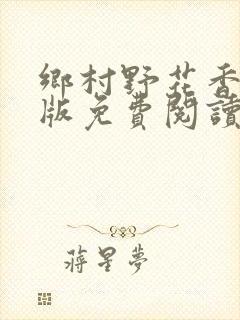 鄉村野花香
版免費閱讀
蔣星夢